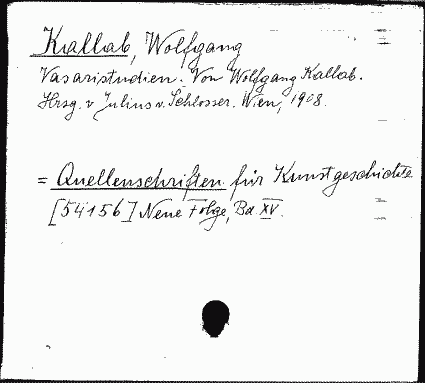 Kallab, Wolfgang
Vasaristudien. Von Wolfgang Kallab.
Hrsg. v Julius v. Schlosser. Wien, 1908.
= Quellenschriften für Kunstgeschichte
[54156] Neue Folge, Bd XV.